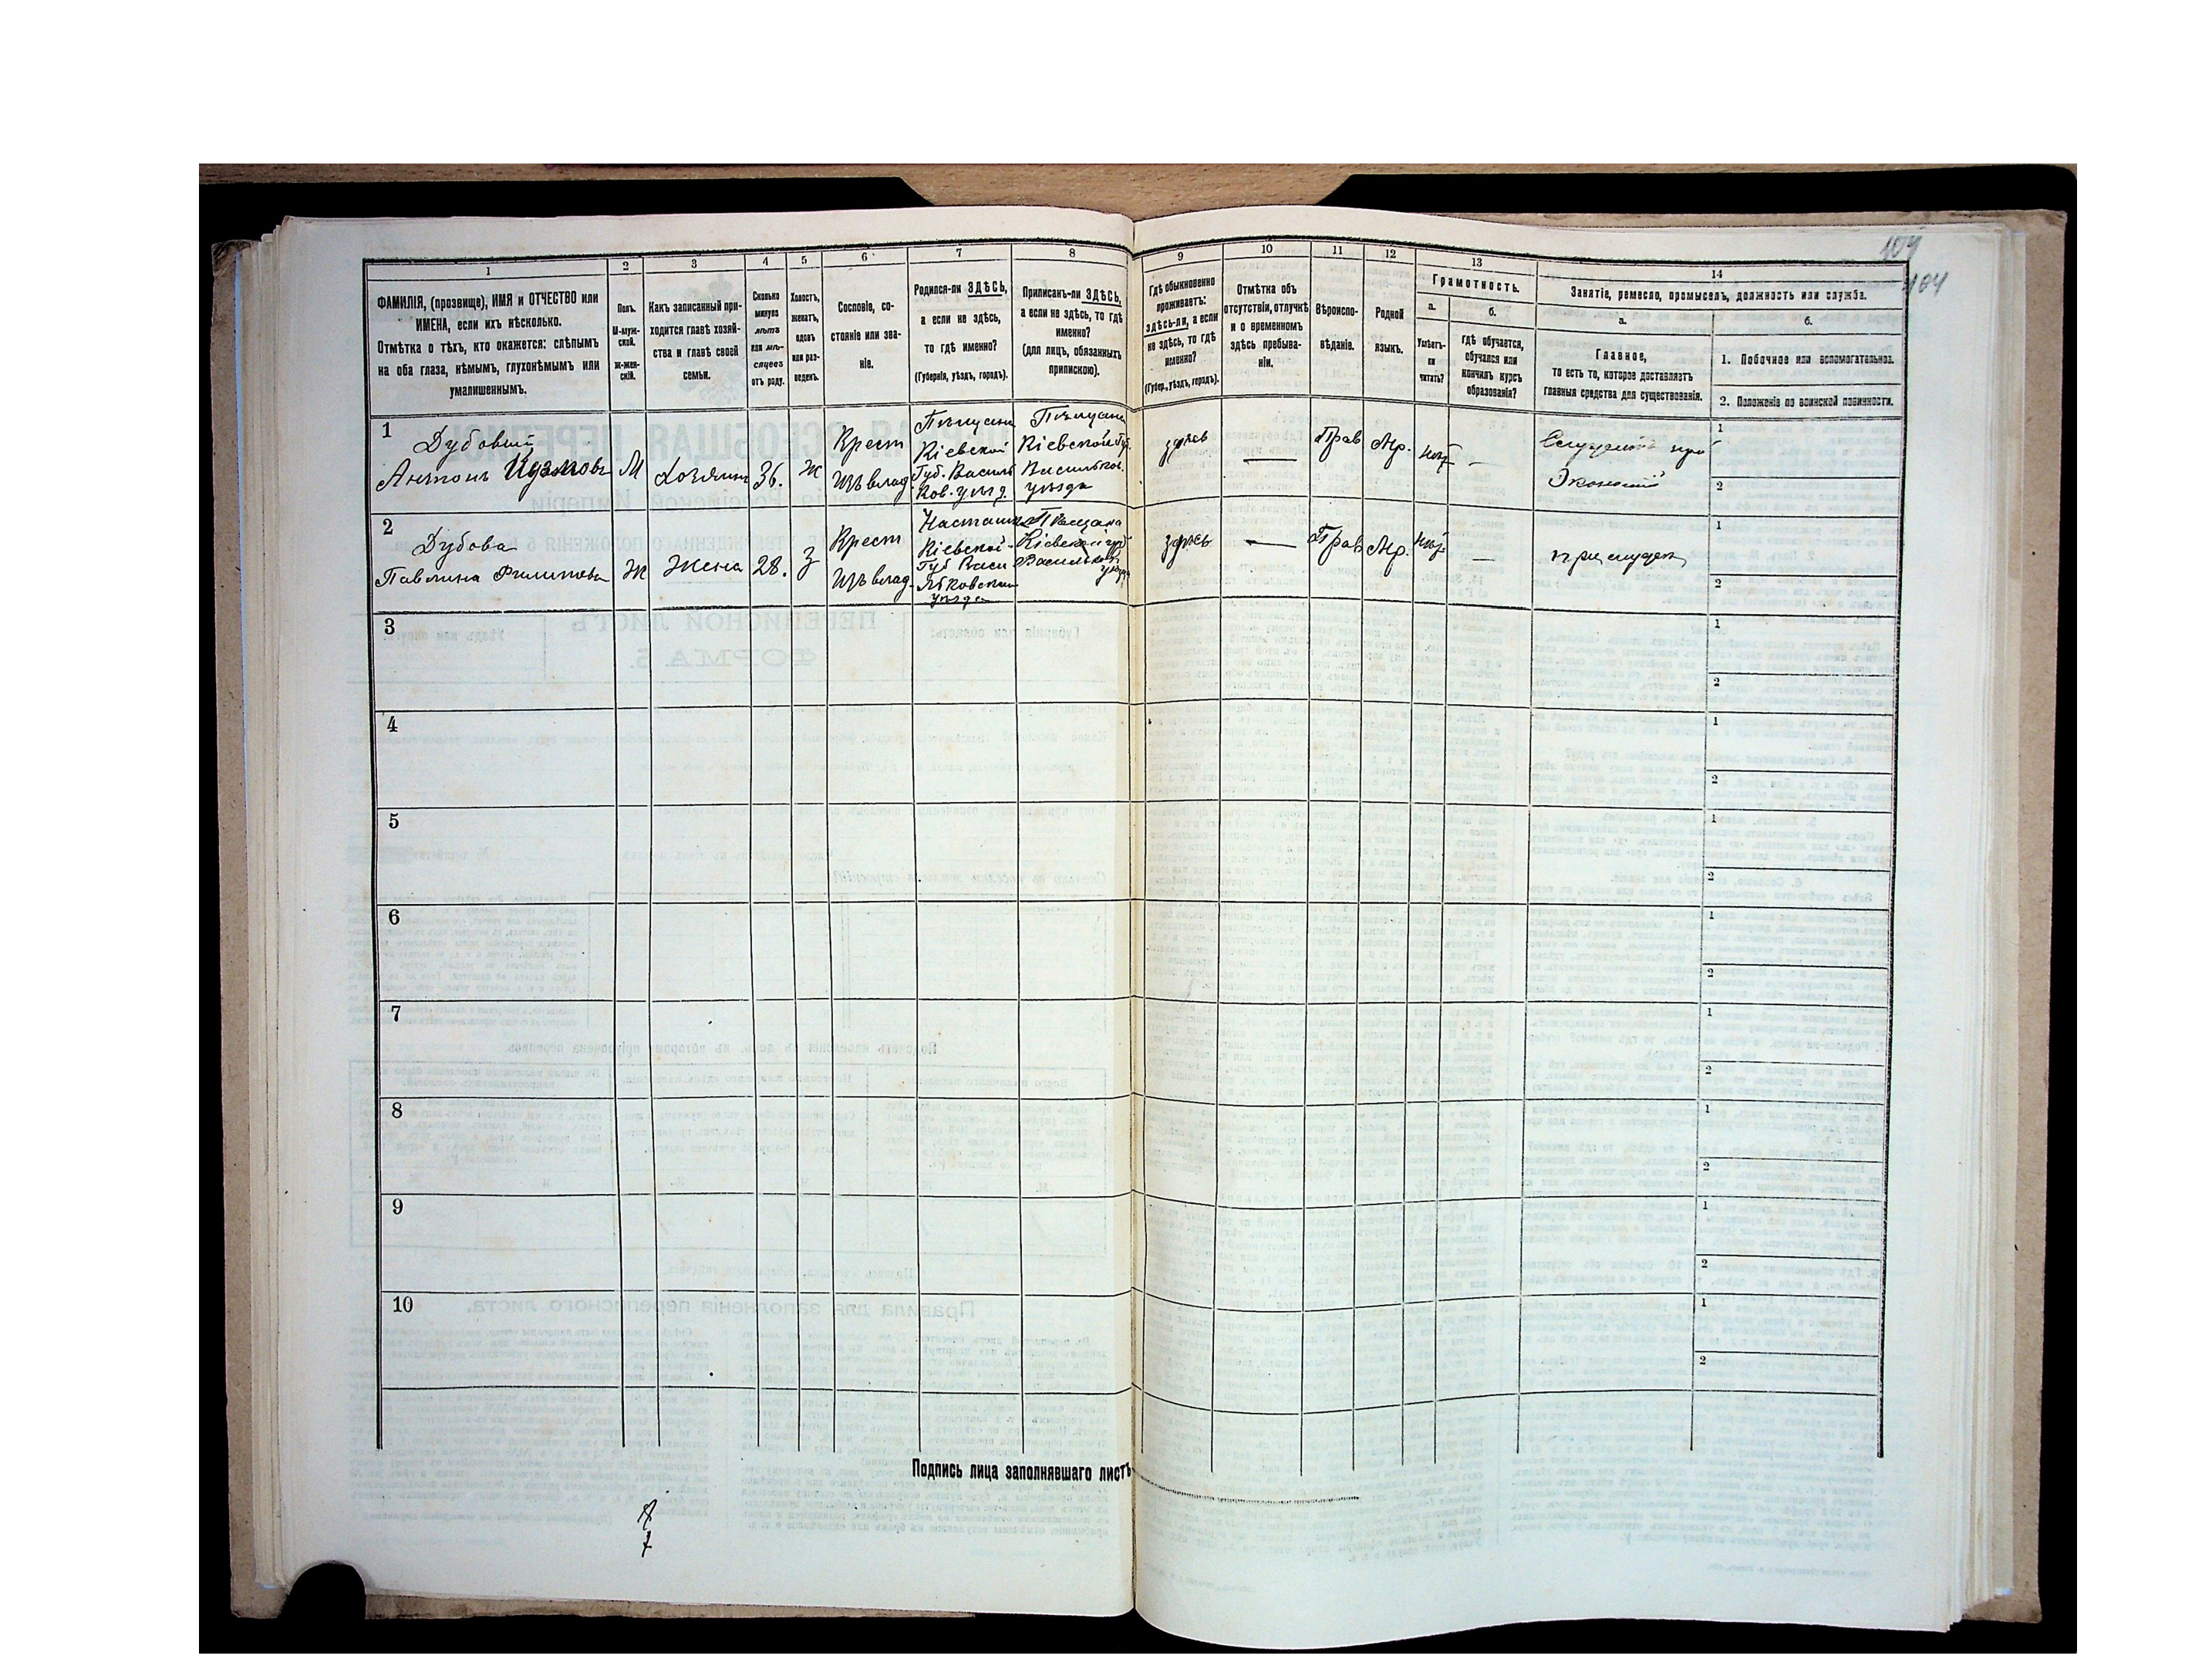 104
104
1
2
3
4
5
6
7
8
9
10
11
12
13
14
ФАМИЛІЯ, (прозвище), ИМЯ и ОТЧЕСТВО или
ИМЕНА, если ихъ нѣсколько.
Отмѣтка о тѣхъ, кто окажется: слѣпымъ
на оба глаза, нѣмымъ, глухонѣмымъ или
умалишеннымъ.
Полъ.
М-муж-
ской.
Ж-жен-
скій.
Какъ записанный при-
ходится главѣ хозяй-
ства и главѣ своей
семьи.
Сколько
минуло
лѣтъ
или мѣ-
сяцевъ
отъ роду.
Холостъ,
женатъ,
вдовъ
или раз-
веденъ.
Сословіе, со-
стояніе или зва-
ніе.
Родился-ли ЗДѢСЬ,
а если не здѣсь,
то гдѣ именно?
(Губернія, уѣздъ, городъ).
Приписанъ-ли ЗДѢСЬ,
а если не здѣсь, то гдѣ
именно?
(для лицъ, обязанныхъ
припискою).
Гдѣ обыкновенно
проживаетъ:
здѣсь-ли, а если
не здѣсь, то гдѣ
именно?
(Губер., уѣздъ, городъ).
Отмѣтка объ
отсутствіи, отлучкѣ
и о временномъ
здѣсь пребыва-
ніи.
Вѣроиспо-
вѣданіе.
Родной
языкъ.
Грамотность.
а.
Умѣетъ-
ли
читать?
б.
гдѣ обучается,
обучался или
кончилъ курсъ
образованія?
Занятіе, ремесло, промыселъ, должность или служба.
а.
Главное,
то есть то, которое доставляетъ
главныя средства для существованія.
б.
1. Побочное или вспомогательное.
2. Положеніе по воинской повинности.
1
Дубовый
Антонъ Кузмовъ
М
Хозяинъ
36.
Ж
Крест
изъ влад
Кіевской
Губ. Василь
ков. уѣзд.
Кіевской Губ.
Васильков.
уѣзда
здѣсь
—
Прав
Мр.
нѣт
—
при
Экономіи
1
2
2
Дубова
Павлина Филипова
Ж
Жена
28.
З
Крест
изъ влад.
Кіевской
Губ Васи
льковскаго
уѣзда
Кіевской губ
Васильков
уѣзда
здѣсь
—
Прав
Мр.
нѣт
—
при мужѣ
1
2
3
1
2
4
1
2
5
1
2
6
1
2
7
1
2
8
1
2
9
1
2
10
1
2
Подпись лица заполнявшаго листъ